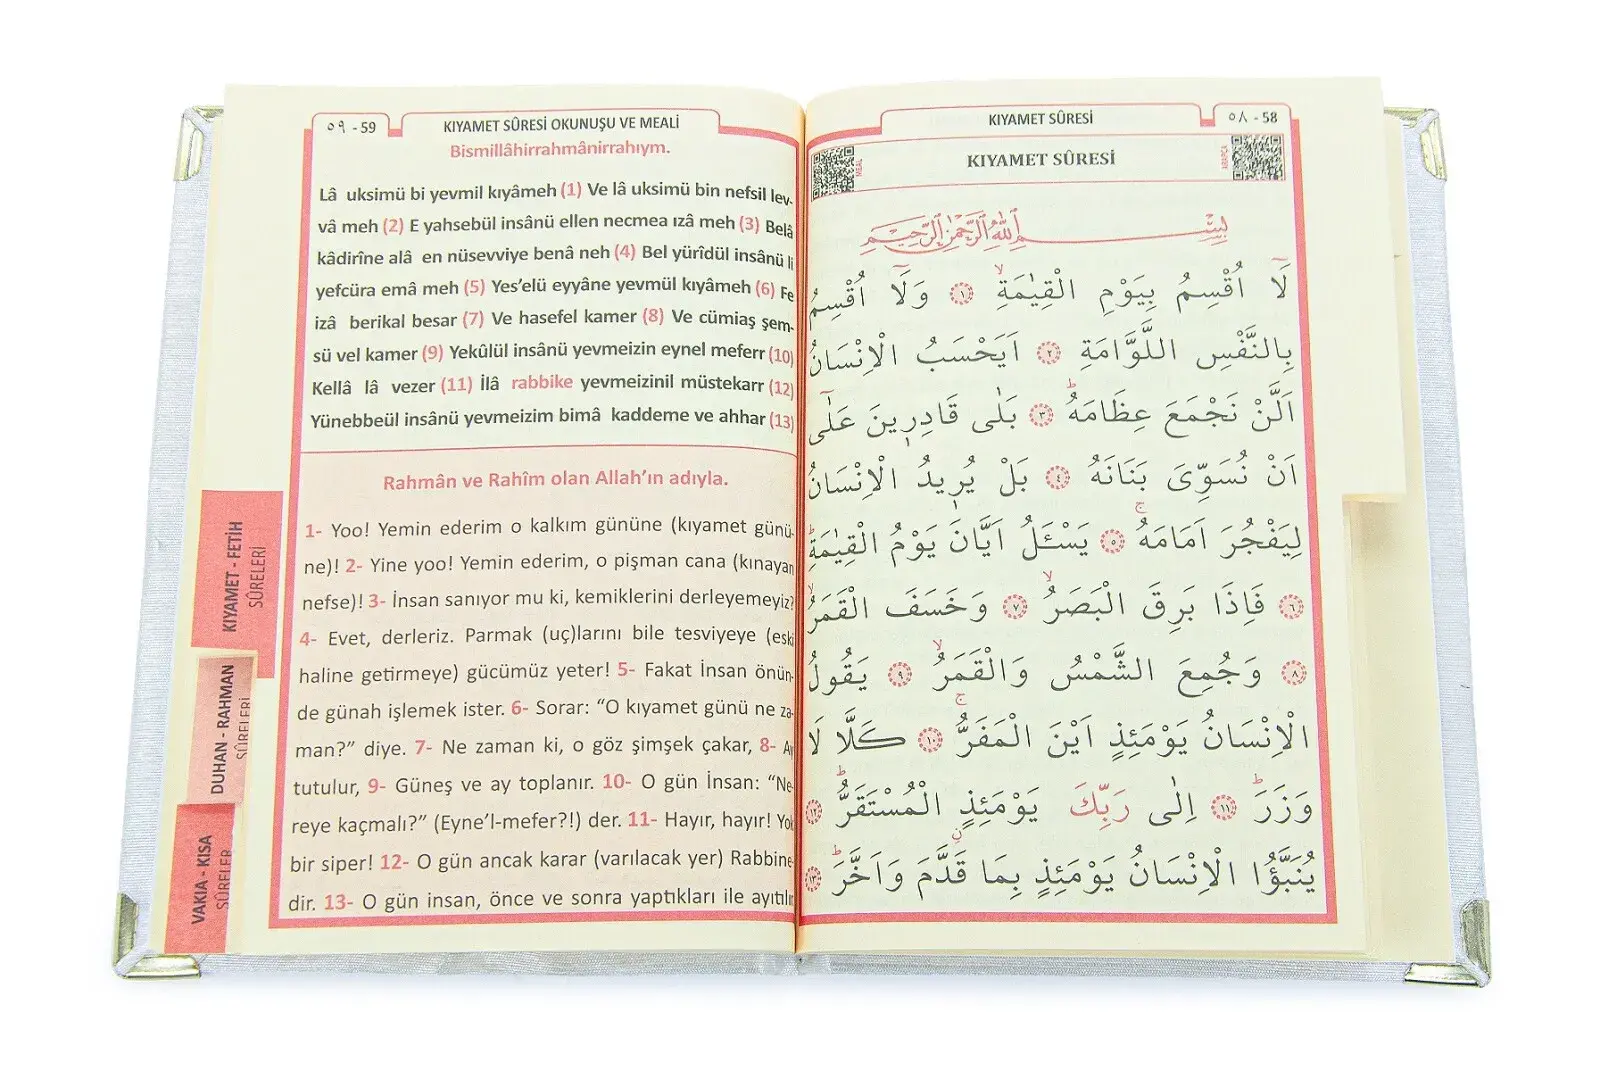 ٥٩ - 59
KIYAMET SÛRESİ OKUNUŞU VE MEALİ
Bismillâhirrahmânirrahıym.
Lâ uksimü bi yevmil kıyâmeh (1) Ve lâ uksimü bin nefsil lev-
vâ meh (2) E yahsebül insânü ellen necmea ızâ meh (3) Belâ
kâdirîne alâ en nüsevviye benâ neh (4) Bel yürîdül insânü li
yefcüra emâ meh (5) Yes’elü eyyâne yevmül kıyâmeh (6) Fe
izâ berikal besar (7) Ve hasefel kamer (8) Ve cümiaş şem-
sü vel kamer (9) Yekûlül insânü yevmeizin eynel meferr (10)
Kellâ lâ vezer (11) İlâ rabbike yevmeizinil müstekarr (12)
Yünebbeül insânü yevmeizim bimâ kaddeme ve ahhar (13)
Rahmân ve Rahîm olan Allah’ın adıyla.
1- Yoo! Yemin ederim o kalkım gününe (kıyamet günü-
ne)! 2- Yine yoo! Yemin ederim, o pişman cana (kınayan
nefse)! 3- İnsan sanıyor mu ki, kemiklerini derleyemeyiz?
4- Evet, derleriz. Parmak (uç)larını bile tesviyeye (eski
haline getirmeye) gücümüz yeter! 5- Fakat İnsan önün-
de günah işlemek ister. 6- Sorar: “O kıyamet günü ne za-
man?” diye. 7- Ne zaman ki, o göz şimşek çakar, 8- Ay
tutulur, 9- Güneş ve ay toplanır. 10- O gün İnsan: “Ne-
reye kaçmalı?” (Eyne’l-mefer?!) der. 11- Hayır, hayır! Yok
bir siper! 12- O gün ancak karar (varılacak yer) Rabbine-
dir. 13- O gün insan, önce ve sonra yaptıkları ile ayıtılır
KIYAMET - FETİH
SÛRELERİ
DUHAN - RAHMAN
SÛRELERİ
VAKIA - KISA
SÛRELER
KIYAMET SÛRESİ
٥٨ - 58
MEAL
KIYAMET SÛRESİ
ARAPÇA
بِسْمِ اللّٰهِ الرَّحْمٰنِ الرَّحِيمِ
لَٓا اُقْسِمُ بِيَوْمِ الْقِيٰمَةِۙ ﴿١﴾ وَلَٓا اُقْسِمُ
بِالنَّفْسِ اللَّوَّامَةِ ﴿٢﴾ اَيَحْسَبُ الْاِنْسَانُ
اَلَّنْ نَجْمَعَ عِظَامَهُۜ ﴿٣﴾ بَلٰى قَادِر۪ينَ عَلٰٓى
اَنْ نُسَوِّىَ بَنَانَهُ ﴿٤﴾ بَلْ يُر۪يدُ الْاِنْسَانُ
لِيَفْجُرَ اَمَامَهُۚ ﴿٥﴾ يَسْـَٔلُ اَيَّانَ يَوْمُ الْقِيٰمَةِۜ
﴿٦﴾ فَاِذَا بَرِقَ الْبَصَرُۙ ﴿٧﴾ وَخَسَفَ الْقَمَرُۙ
﴿٨﴾ وَجُمِعَ الشَّمْسُ وَالْقَمَرُۙ ﴿٩﴾ يَقُولُ
الْاِنْسَانُ يَوْمَئِذٍ اَيْنَ الْمَفَرُّۚ ﴿١٠﴾ كَلَّا لَا
وَزَرَۜ ﴿١١﴾ اِلٰى رَبِّكَ يَوْمَئِذٍ الْمُسْتَقَرُّۜ ﴿١٢﴾
يُنَبَّؤُا الْاِنْسَانُ يَوْمَئِذٍ بِمَا قَدَّمَ وَاَخَّرَۜ ﴿١٣﴾